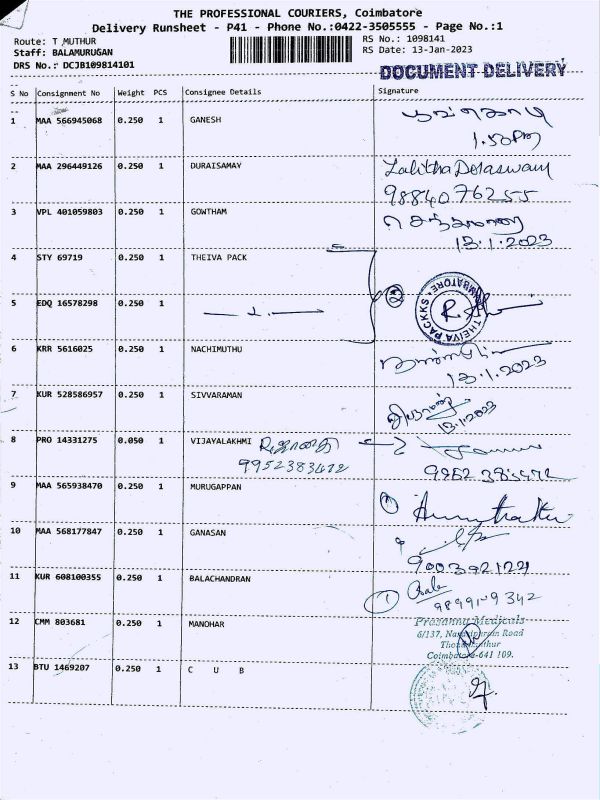 THE PROFESSIONAL COURIERS, Coimbatore
Delivery Runsheet - P41 - Phone No.:0422-3505555 - Page No.:1
Route: T MUTHUR
RS No.: 1098141
Staff: BALAMURUGAN
RS Date: 13-Jan-2023
DRS No.: DCJB109814101
DOCUMENT DELIVERY
S No Consignment No Weight PCS Consignee Details Signature
1 MAA 566945068 0.250 1 GANESH
1.50pm
2 MAA 296449126 0.250 1 DURAISAMAY Lalitha Doraswamy
9884076255
3 VPL 401059803 0.250 1 GOWTHAM
13.1.2023
4 STY 69719 0.250 1 THEIVA PACK
THEIVA PACKKS COIMBATORE
5 EDQ 16578298 0.250 1
6 KRR 5616025 0.250 1 NACHIMUTHU
13.1.2023
7 KUR 528586957 0.250 1 SIVVARAMAN
13.1.2023
8 PRO 14331275 0.050 1 VIJAYALAKHMI
9952383472 9952383472
9 MAA 565938470 0.250 1 MURUGAPPAN
10 MAA 568177847 0.250 1 GANASAN
11 KUR 608100355 0.250 1 BALACHANDRAN Bala
12 CMM 803681 0.250 1 MANOHAR Prasanna Medicals
6/137, Road
Coimbatore-641 109.
13 BTU 1469207 0.250 1 C U B